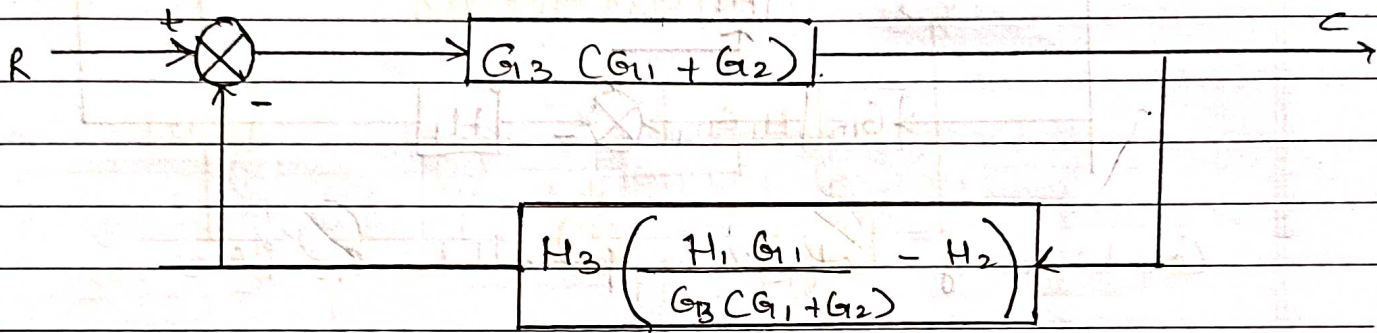 +
R
G3 (G1 + G2)
C
-
H3 ( H1 G1 / G3 (G1 + G2) - H2 )